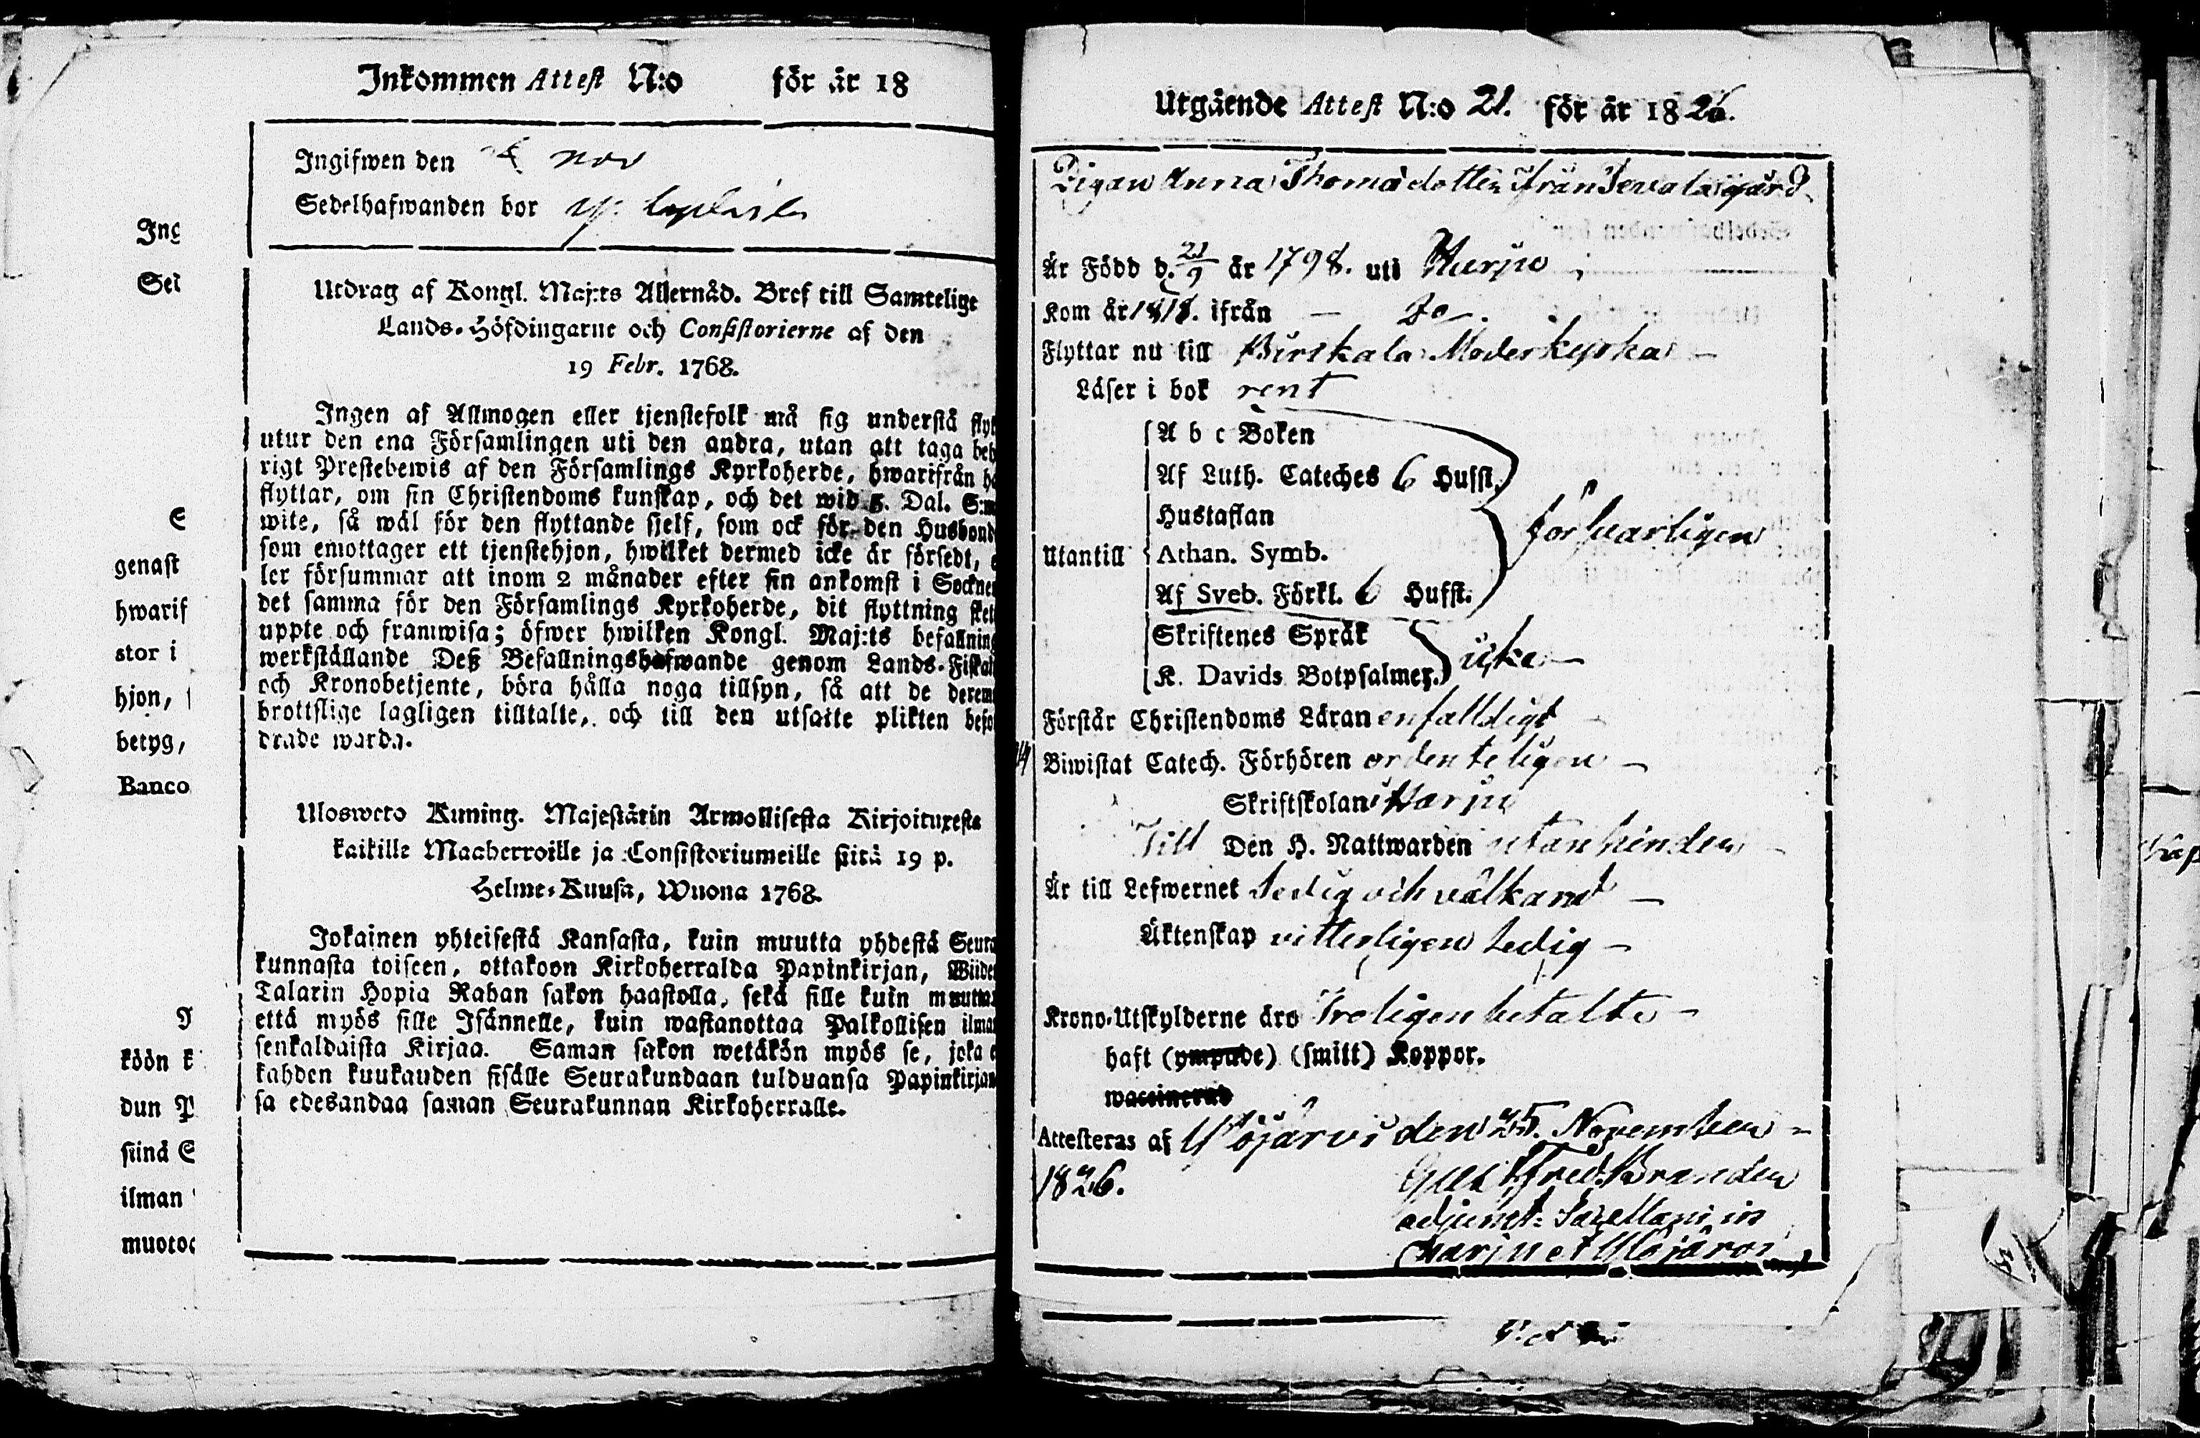 Inkommen Attest N:o för år 18
Ingifwen den nov
Sedelhafwanden bor
Utdrag af Kongl. Maj:ts Allernåd. Bref till Samtelige
Lands-Höfdingarne och Consistorierne af den
19 Febr. 1768.
Ingen af Allmogen eller tjenstefolk må sig understå flyt
utur den ena Församlingen uti den andra, utan att taga beh
rigt Prestebewis af den Församlings Kyrkoherde, hwarifrån ha
flyttar, om sin Christendoms kunskap, och det wid 5. Dal. S:m
wite, så wäl för den flyttande sjelf, som ock för den Husbond
som emottager ett tjenstehjon, hwilket dermed icke är försedt, e
ler försummar att inom 2 månader efter sin ankomst i Socknen
det samma för den Församlings Kyrkoherde, dit flyttning sket
uppte och framwisa; öfwer hwilken Kongl. Maj:ts befallning
werkställande Deß Befallningshafwande genom Lands-Fiskal
och Kronobetjente, böra hålla noga tillsyn, så att de derem
brottslige lagligen tilltalte, och till den utsatte plikten befo
drade warda.
Ulosweto Kuning. Majestätin Armollisesta Kirjoituxesta
kaikille Maaherroille ja Consistoriumeille siitä 19 p.
Helme-Kuusa, Wuona 1768.
Jokainen yhteisestä Kansasta, kuin muutta yhdestä Seura
kunnasta toiseen, ottakoon Kirkoherralda Papinkirjan, Wiide
Talarin Hopia Rahan sakon haastolla, sekä sille kuin muutta
että myös sille Isännelle, kuin wastanottaa Palkollisen ilma
senkaldaista Kirjaa. Saman sakon wetäkön myös se, joka e
kahden kuukauden sisälle Seurakundaan tulduansa Papinkirjan
sa edesandaa saman Seurakunnan Kirkoherralle.
Ing
Sed
S
genast
hwarif
stor i
hjon,
betyg,
Banco
köön k
dun P
siinä S
ilman
muotoo
Utgående Attest N:o 21. för år 1826.
Pigan Anna Thomædotter ifrån Sevala gård
Är Född d. 21/9 år 1798. uti Harju
Kom år 1818. ifrån — do —.
Flyttar nu till Birkala Moderkyrka —
Läser i bok rent
A b c Boken
Af Luth. Cateches 6 Hufst.
Hustaflan
Utantill Athan. Symb.
Af Sveb. Förkl. 6 Hufst.
försvarligen
Skriftenes Språk
K. Davids Botpsalmer. icke —
Förstår Christendoms Läran enfaldigt —
Biwistat Catech. Förhören ordenteligen —
Skriftskolan i Harju
Till Den H. Nattwarden utan hinder —
Är till Lefwernet Sedig och välkänd —
Äktenskap vitterligen Ledig —
Krono-Utskylderne äro Troligen betalte —
haft (ympade) (smitt) Koppor.
waccinerad
Attesteras af Ylöjärvi den 25. November
1826. Gust. Fred. Brander
adjunct: Sacellani in
Harju et Ylöjärvi